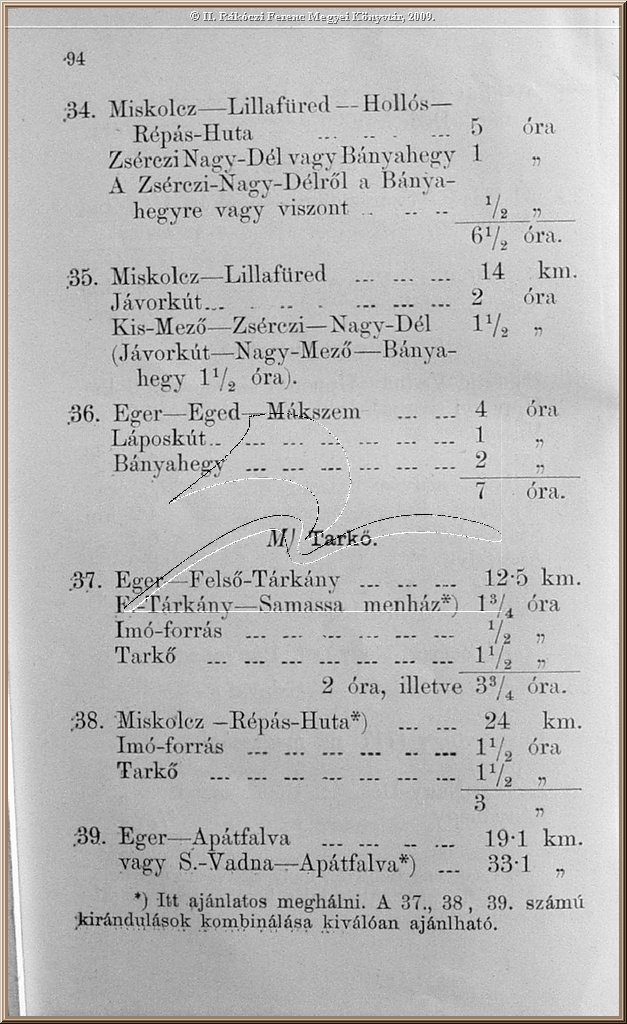 © II. Rákóczi Ferenc Megyei Könyvtár, 2009.
94
34. Miskolcz—Lillafüred — Hollós—
Répás-Huta ... ... ... 5 óra
Zsérczi Nagy-Dél vagy Bányahegy 1 „
A Zsérczi-Nagy-Délről a Bánya-
hegyre vagy viszont ... ... 1/2 „
6 1/2 óra.
35. Miskolcz—Lillafüred ... ... ... 14 km.
Jávorkút ... ... ... ... ... ... 2 óra
Kis-Mező—Zsérczi—Nagy-Dél 1 1/2 „
(Jávorkút—Nagy-Mező—Bánya-
hegy 1 1/2 óra).
36. Eger—Eged—Mákszem ... ... 4 óra
Láposkút ... ... ... ... ... ... ... 1 „
Bányahegy ... ... ... ... ... ... 2 „
7 óra.
M) Tarkő.
37. Eger—Felső-Tárkány ... ... ... 12·5 km.
F.-Tárkány—Samassa menház*) 1 3/4 óra
Imó-forrás ... ... ... ... ... ... 1/2 „
Tarkő ... ... ... ... ... ... ... 1 1/2 „
2 óra, illetve 3 3/4 óra.
38. Miskolcz —Répás-Huta*) ... ... 24 km.
Imó-forrás ... ... ... ... ... ... 1 1/2 óra
Tarkő ... ... ... ... ... ... ... 1 1/2 „
3 „
39. Eger—Apátfalva ... ... ... ... 19·1 km.
vagy S.-Vadna—Apátfalva*) ... 33·1 „
*) Itt ajánlatos meghálni. A 37., 38, 39. számú
kirándulások kombinálása kiválóan ajánlható.